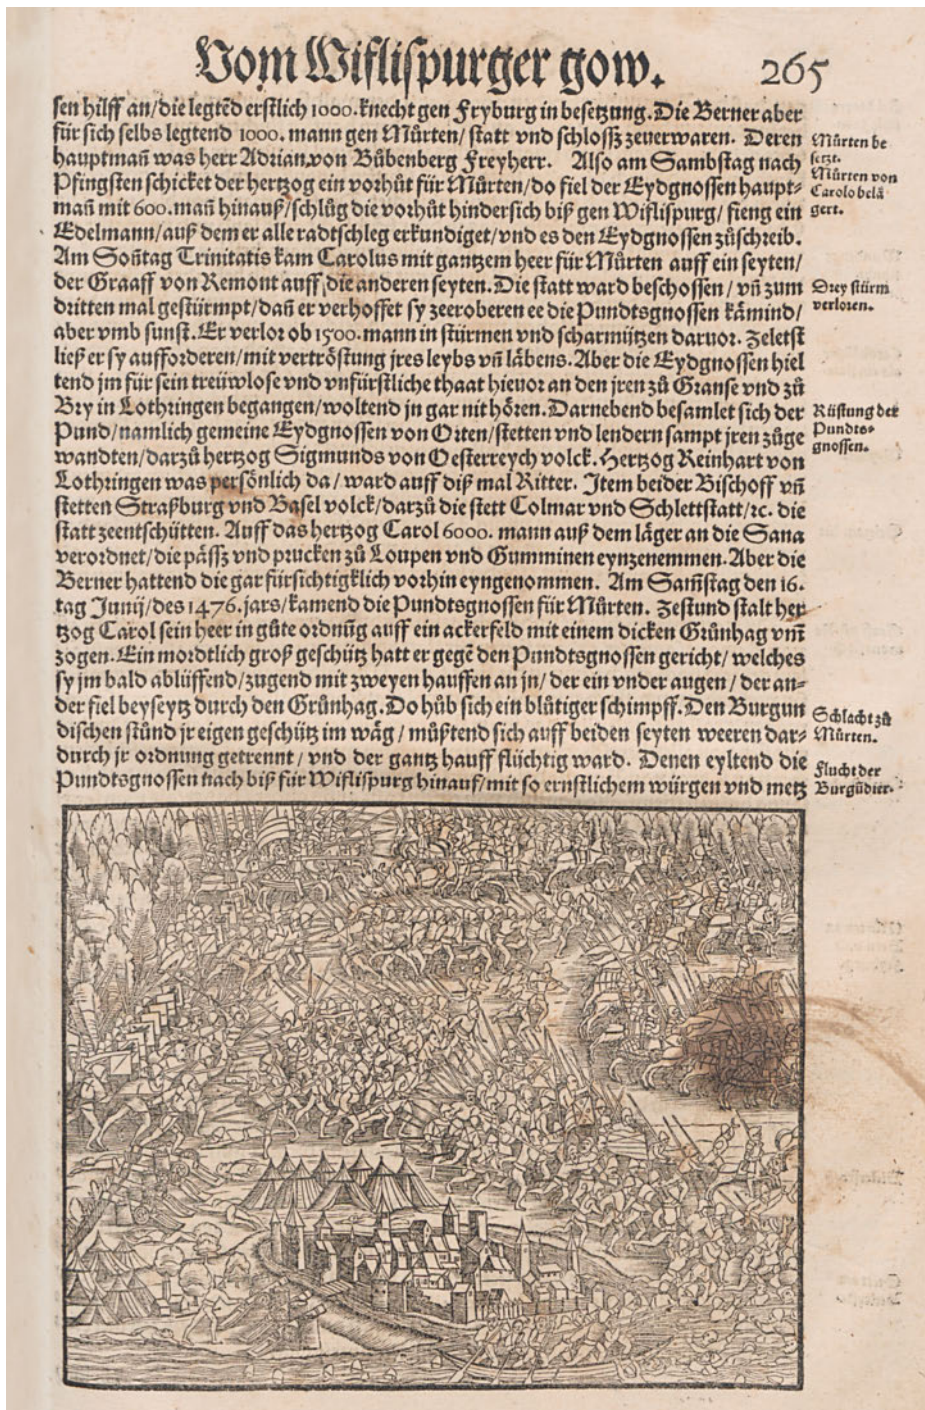 Vom Wiflispurger gow. 265
sen hilff an/die legtēd erstlich 1000. knecht gen Fryburg in besetzung. Die Berner aber
für sich selbs legtend 1000. mann gen Mûrten/ statt vnd schlossz zeuerwaren. Deren
hauptmañ was herr Adrian von Bûbenberg Freyherr. Also am Sambstag nach
Pfingsten schicket der hertzog ein vorhût für Mûrten/do fiel der Eydgnossen haupt-
mañ mit 600. mañ hinauß/schlûg die vorhût hindersich biß gen Wiflispurg/ fieng ein
Edelmann/auß dem er alle radtschleg erkundiget/vnd es den Eydgnossen zûschreib.
Am Soñtag Trinitatis kam Carolus mit gantzem heer für Mûrten auff ein seyten/
der Graaff von Remont auff die anderen seyten. Die statt ward beschossen/ vñ zum
dritten mal gestürmpt/dañ er verhoffet sy zeeroberen ee die Pundtsgnossen kämind/
aber vmb sunst. Er verlor ob 1500. mann in stürmen vnd scharmützen daruor. Zeletst
ließ er sy aufforderen/mit vertröstung jres leybs vñ läbens. Aber die Eydgnossen hiel
tend jm für sein treüwlose vnd vnfürstliche thaat hieuor an den jren zû Granse vnd zû
Bry in Lothringen begangen/woltend jn gar nit hören. Darnebend besamlet sich der
Pund/namlich gemeine Eydgnossen von Orten/stetten vnd lendern sampt jren zûge
wandten/darzû hertzog Sigmunds von Oesterreych volck. Hertzog Reinhart von
Lothringen was persönlich da/ ward auff diß mal Ritter. Item beider Bischoff vñ
stetten Straßburg vnd Basel volck/darzû die stett Colmar vnd Schlettstatt/ꝛc. die
statt zeentschütten. Auff das hertzog Carol 6000. mann auß dem läger an die Sana
verordnet/die pässz vnd prucken zû Loupen vnd Gumminen eynzenemmen. Aber die
Berner hattend die gar fürsichtigklich vorhin eyngenommen. Am Sam̄stag den 16.
tag Junij/des 1476. jars/kamend die Pundtsgnossen für Mûrten. Zestund stalt her
tzog Carol sein heer in gûte ordnūg auff ein ackerfeld mit einem dicken Grûnhag vm̄
zogen. Ein mordtlich groß geschütz hatt er gegē den Pundtsgnossen gericht/ welches
sy jm bald ablüffend/zugend mit zweyen hauffen an jn/ der ein vnder augen/ der an-
der fiel beyseytz durch den Grûnhag. Do hûb sich ein blûtiger schimpff. Den Burgun
dischen stûnd jr eigen geschütz im wäg/ mûßtend sich auff beiden seyten weeren dar-
durch jr ordnung getrennt/ vnd der gantz hauff flüchtig ward. Denen eyltend die
Pundtsgnossen nach biß für Wiflispurg hinauf/mit so ernstlichem würgen vnd metz
Mûrten be
setzt.
Mûrten von
Carolo belä
gert.
Drey stürm
verloren.
Rüstung der
Pundts-
gnossen.
Schlacht zû
Mûrten.
Flucht der
Burgūdier.